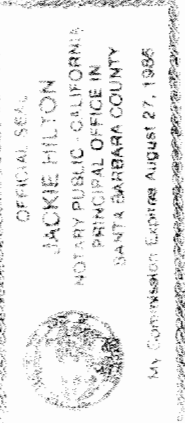 OFFICIAL SEAL
JACKIE HILTON
NOTARY PUBLIC - CALIFORNIA
PRINCIPAL OFFICE IN
SANTA BARBARA COUNTY
My Commission Expires August 27, 1986